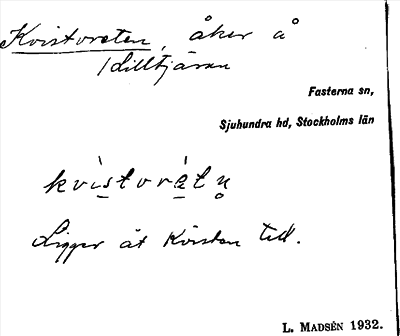 Kvistoreten, åker å
/Lilltjäran
Fasterna sn,
Sjuhundra hd, Stockholms län
kvìstoràtn̥
Ligger åt Kvisten till.
L. MADSÉN 1932.